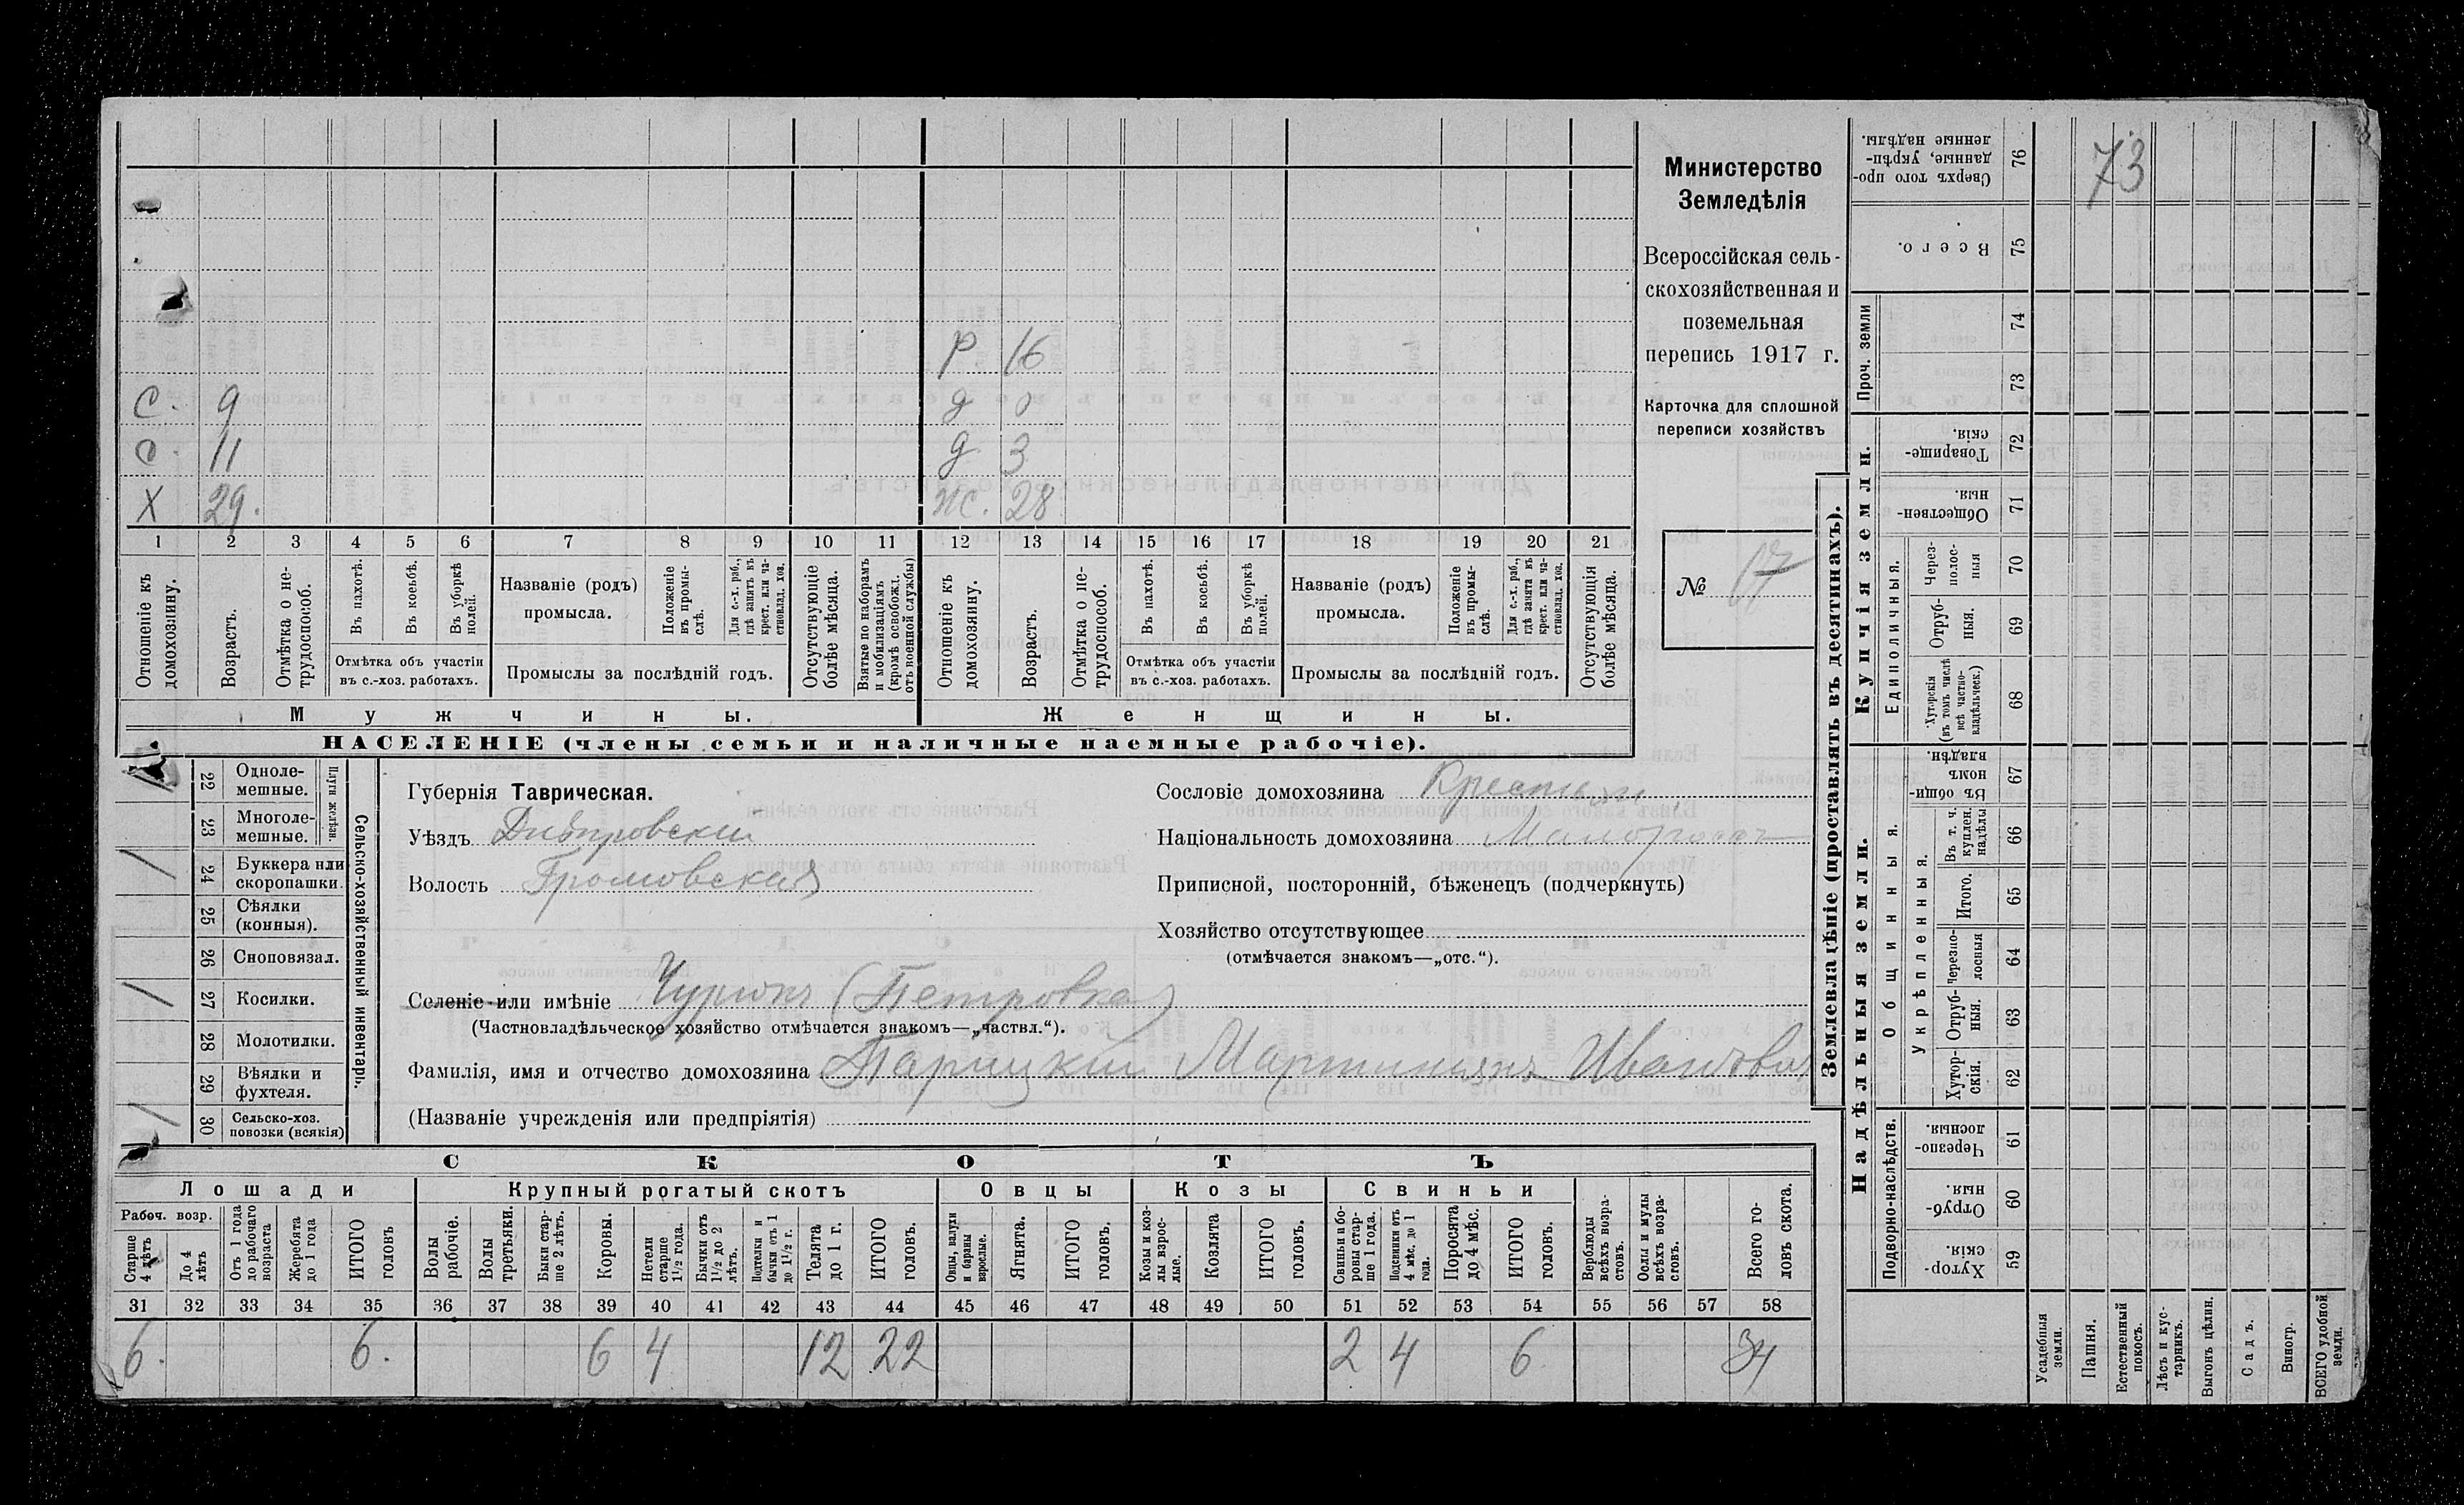 73
Р 16
С. 9 д 0
С. 11 д 3
Х 29. ж. 28
1 2 3 4 5 6 7 8 9 10 11 12 13 14 15 16 17 18 19 20 21
Отношеніе къ домохозяину.
Возрастъ.
Отмѣтка о не-
трудоспособ.
Въ пахотѣ.
Въ косьбѣ.
Въ уборкѣ
полей.
Отмѣтка объ участіи
въ с.-хоз. работахъ.
Названіе (родъ)
промысла.
Положеніе
въ промы-
слѣ.
Для с.-х. раб.,
гдѣ занятъ въ
крест. или ча-
стновлад. хоз.
Промыслы за послѣдній годъ.
Отсутствующіе
болѣе мѣсяца.
Взятые по наборамъ
и мобилизаціямъ
(кромѣ освобожд.
отъ военной службы)
Отношеніе къ
домохозяину.
Возрастъ.
Отмѣтка о не-
трудоспособ.
Въ пахотѣ.
Въ косьбѣ.
Въ уборкѣ
полей.
Отмѣтка объ участіи
въ с.-хоз. работахъ.
Названіе (родъ)
промысла.
Положеніе
въ промы-
слѣ.
Для с.-х. раб.,
гдѣ занята въ
крест. или ча-
стновлад. хоз.
Промыслы за послѣдній годъ.
Отсутствующія
болѣе мѣсяца.
Мужчины.
Женщины.
НАСЕЛЕНІЕ (члены семьи и наличные наемные рабочіе).
Министерство
Земледѣлія
Всероссійская сель-
скохозяйственная и
поземельная
перепись 1917 г.
Карточка для сплошной
переписи хозяйствъ
№ 17
22 Одноле-
мешные.
23 Многоле-
мешные.
Плуги желѣзн.
/ 24 Буккера или
скоропашки.
25 Сѣялки
(конныя).
26 Сноповязал.
/ 27 Косилки.
28 Молотилки.
29 Вѣялки и
фухтеля.
/ 30 Сельско-хоз.
повозки (всякія)
Сельско-хозяйственный инвентарь.
Губернія Таврическая.
Уѣздъ Днѣпровскій
Волость Громовская
Сословіе домохозяина Крестьян.
Національность домохозяина Малороссъ
Приписной, посторонній, бѣженецъ (подчеркнуть)
Хозяйство отсутствующее
(отмѣчается знакомъ—„отс.“).
Селеніе или имѣніе Чурюкъ (Петровка)
(Частновладѣльческое хозяйство отмѣчается знакомъ—„частвл.“).
Фамилія, имя и отчество домохозяина Парицкій Мартиніянъ Ивановъ
(Названіе учрежденія или предпріятія)
СКОТЪ
Лошади
Крупный рогатый скотъ
Овцы
Козы
Свиньи
Рабоч. возр.
Старше
4 лѣтъ
До 4
лѣтъ
Отъ 1 года
до рабочаго
возраста
Жеребята
до 1 года
ИТОГО
головъ
Волы
рабочіе.
Волы
третьяки.
Быки стар-
ше 2 лѣтъ.
Коровы.
Нетели
старше
1½ года.
Бычки отъ
1½ до 2
лѣтъ.
Подтелки и
бычки отъ 1
до 1½ г.
Телята
до 1 г.
ИТОГО
головъ.
Овцы, валухи
и бараны
взрослые.
Ягнята.
ИТОГО
головъ.
Козы и коз-
лы взрос-
лые.
Козлята
ИТОГО
головъ.
Свиньи и бо-
ровы стар-
ше 1 года.
Подсвинки отъ
4 мѣс. до 1
года.
Поросята
до 4 мѣс.
ИТОГО
головъ.
Верблюды
всѣхъ возра-
стовъ.
Ослы и мулы
всѣхъ возра-
стовъ.
Всего го-
ловъ скота.
31 32 33 34 35 36 37 38 39 40 41 42 43 44 45 46 47 48 49 50 51 52 53 54 55 56 57 58
6. 6. 6 4 12 22 2 4 6 34
Землевладѣніе (проставлять въ десятинахъ).
Надѣльныя земли.
Купчія земли.
Проч. земли
Подворно-наслѣдств.
Общинныя.
Укрѣпленныя.
Единоличныя.
Сверхъ того про-
данные, укрѣп-
ленные надѣлы. 76
Всего. 75
74
73
Товарище-
скія. 72
Обществен-
ныя. 71
Через-
полос-
ныя 70
Отруб-
ныя. 69
Хуторскія
(въ томъ числѣ
всѣ частно-
владѣльческ.) 68
Въ общин-
номъ
владѣн. 67
Въ т. ч.
куплен.
надѣлы 66
Итого. 65
Черезпо-
лосныя 64
Отруб-
ныя. 63
Хутор-
скія. 62
Черезпо-
лосныя. 61
Отруб-
ныя. 60
Хутор-
скія. 59
Усадебныя
земли.
Пашня.
Естественный
покосъ.
Лѣсъ и кус-
тарникъ.
Выгонъ цѣлин.
Садъ.
Виногр.
ВСЕГО удобной
земли.